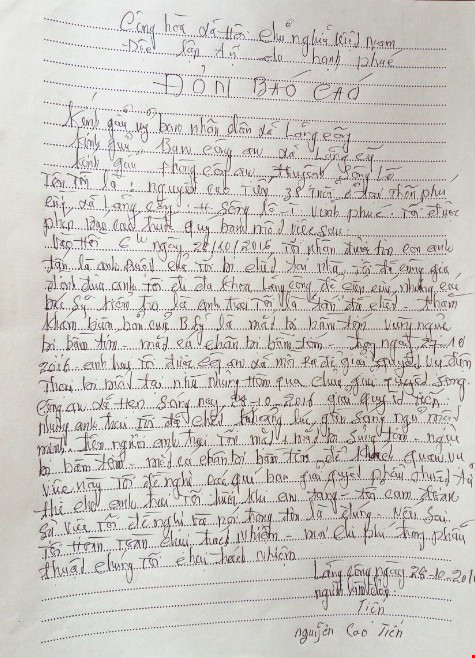 Cộng hòa xã hội chủ nghĩa Việt Nam
Độc lập tự do hạnh phúc
ĐƠN BÁO CÁO
Kính gửi ủy ban nhân dân xã Lãng công
Kính gửi Ban công an xã Lãng công
Kính gửi Phòng công an huyện Sông Lô
Tên Tôi là: nguyễn cao Tiến 38 Tuổi ở tại thôn phú
xã Lãng công H Sông lô T Vĩnh phúc Tôi được
phép báo cáo quý ban một việc sau
Vào Hồi ngày 26/10/2016 Tôi nhận được tin con anh
là anh Tôi bị chết tại nhà Tôi đã cùng gia
đình đưa anh Tôi đi đa khoa Lãng công để cấp cứu nhưng các
bác sỹ kiểm tra là anh trai Tôi đã chết
khám của Bsỹ là mặt bị bầm tím vùng ngực
bị bầm tím mặt cả chân bị bầm tím ngày 27-10
2016 anh trai tôi được công an xã mời ra để giải quyết vụ
tại nhà nhưng Hôm qua chưa giải quyết song
công an xã Hẹn sáng nay 26-10-2016 giải quyết tiếp
nhưng anh trai Tôi đã chết lúc gần sáng ngủ
mình trên người anh trai Tôi mặt bị sưng tím ngực
bị bầm tím mặt cả chân bị bầm tím để khách quan vụ
việc này Tôi đề nghị các quý ban giải quyết phẫu thuật tử
thi cho anh trai Tôi trước khi an táng Tôi cam đoan
sự việc Tôi đề nghị và nội dung trên là đúng nếu sai
Tôi Hoàn Toàn chịu trách nhiệm mọi chi phí trong phẫu
thuật chúng Tôi chịu trách nhiệm
Lãng công ngày 26-10-2016
người làm đơn
Tiến
nguyễn Cao Tiến